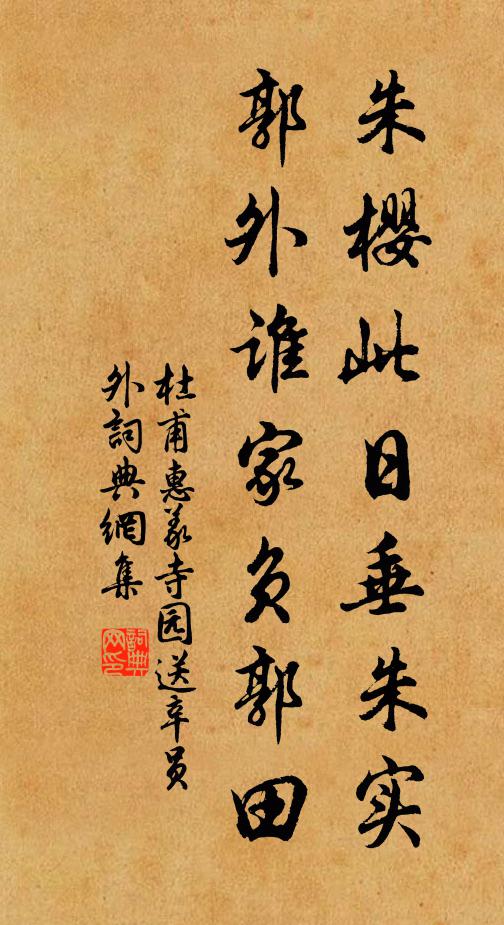 朱櫻此日垂朱实
郭外谁家负郭田
杜甫惠义寺园送辛员
外詞典網集
詞典网印